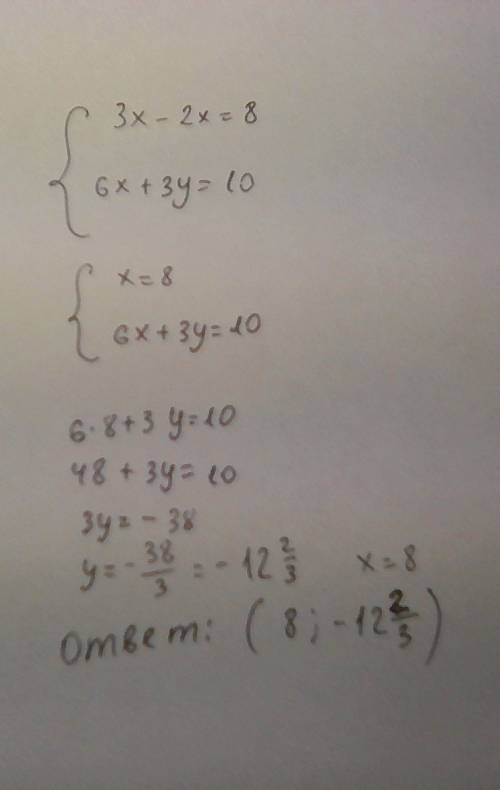 3x - 2x = 8
6x + 3y = 10
x = 8
6x + 3y = 10
6·8 + 3y = 10
48 + 3y = 10
3y = - 38
y = - 38/3 = - 12 2/3 x = 8
Ответ: (8; - 12 2/3)